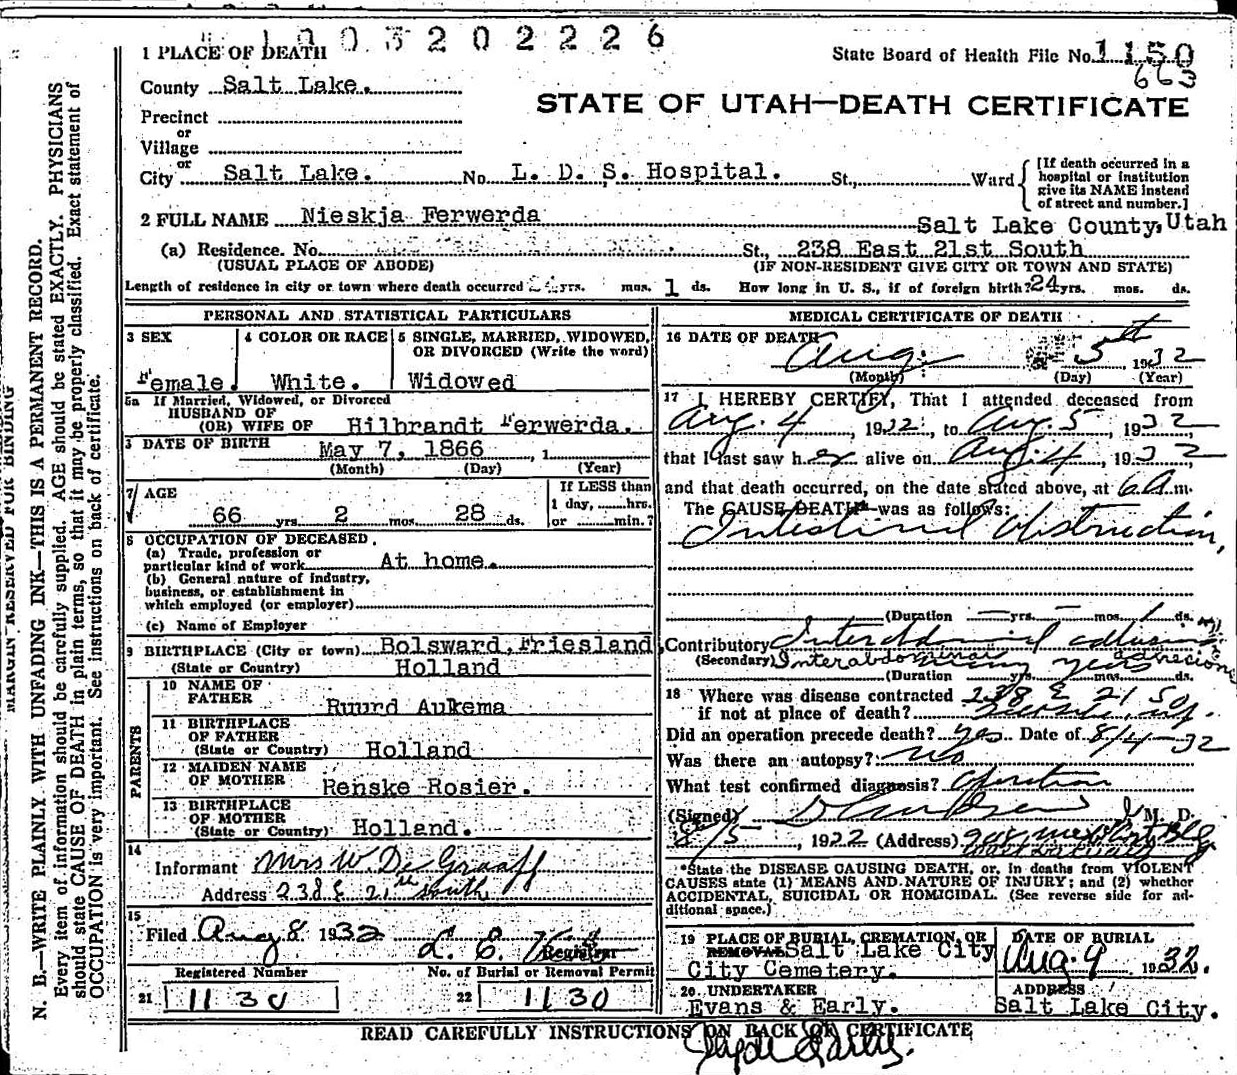 1003202226
1 PLACE OF DEATH
State Board of Health File No. 1150
663
County Salt Lake.
STATE OF UTAH—DEATH CERTIFICATE
Precinct
or
Village
or
City Salt Lake. No. L. D. S. Hospital. St., Ward
[If death occurred in a hospital or institution give its NAME instead of street and number.]
2 FULL NAME Nieskja Ferwerda
Salt Lake County, Utah
(a) Residence. No. St., 238 East 21st South
(USUAL PLACE OF ABODE) (IF NON-RESIDENT GIVE CITY OR TOWN AND STATE)
Length of residence in city or town where death occurred yrs. mos. 1 ds. How long in U. S., if of foreign birth? 24 yrs. mos. ds.
PERSONAL AND STATISTICAL PARTICULARS
3 SEX
4 COLOR OR RACE
5 SINGLE, MARRIED, WIDOWED, OR DIVORCED (Write the word)
Female. White. Widowed
5a If Married, Widowed, or Divorced
HUSBAND OF
(OR) WIFE OF Hilbrandt Ferwerda.
DATE OF BIRTH May 7, 1866 , 1
(Month) (Day) (Year)
7 AGE
If LESS than
1 day, hrs.
or min.?
66 yrs. 2 mos. 28 ds.
8 OCCUPATION OF DECEASED.
(a) Trade, profession or
particular kind of work At home.
(b) General nature of industry,
business, or establishment in
which employed (or employer)
(c) Name of Employer
9 BIRTHPLACE (City or town) Bolsward, Friesland,
(State or Country) Holland
PARENTS
10 NAME OF
FATHER Ruurd Aukema
11 BIRTHPLACE
OF FATHER
(State or Country) Holland
12 MAIDEN NAME
OF MOTHER Renske Rosier.
13 BIRTHPLACE
OF MOTHER
(State or Country) Holland.
14
Informant Mrs W. De Graaff
Address 238 E 21st South
15
Filed Aug 8 1932 L. E.
Registrar
Registered Number
No. of Burial or Removal Permit
21 1130
22 1130
MEDICAL CERTIFICATE OF DEATH
16 DATE OF DEATH Aug. 5th 1932
(Month) (Day) (Year)
17 I HEREBY CERTIFY, That I attended deceased from
Aug. 4, 1932, to Aug. 5, 1932,
that I last saw her alive on Aug. 4, 1932
and that death occurred, on the date stated above, at 6 A.m.
The CAUSE DEATH was as follows:
Intestinal Obstruction,
(Duration — yrs. — mos. 1 ds.
Contributory
(Secondary) Interabdominal adhesions
many years
(Duration yrs. mos. ds.
18 Where was disease contracted 238 E 21 So
if not at place of death?
Did an operation precede death? yes Date of 8/4-32
Was there an autopsy? no
What test confirmed diagnosis? Operation
(Signed) M. D.
8/5, 1932 (Address)
*State the DISEASE CAUSING DEATH, or, in deaths from VIOLENT
CAUSES state (1) MEANS AND NATURE OF INJURY; and (2) whether
ACCIDENTAL, SUICIDAL OR HOMICIDAL. (See reverse side for ad-
ditional space.)
19 PLACE OF BURIAL, CREMATION, OR
REMOVAL Salt Lake City
City Cemetery.
DATE OF BURIAL
Aug. 9 1932.
20 UNDERTAKER
Evans & Early.
ADDRESS
Salt Lake City.
READ CAREFULLY INSTRUCTIONS ON BACK OF CERTIFICATE
MARGIN RESERVED FOR BINDING
N. B.—WRITE PLAINLY WITH UNFADING INK—THIS IS A PERMANENT RECORD.
Every item of information should be carefully supplied. AGE should be stated EXACTLY. PHYSICIANS
should state CAUSE OF DEATH in plain terms, so that it may be properly classified. Exact statement of
OCCUPATION is very important. See instructions on back of certificate.